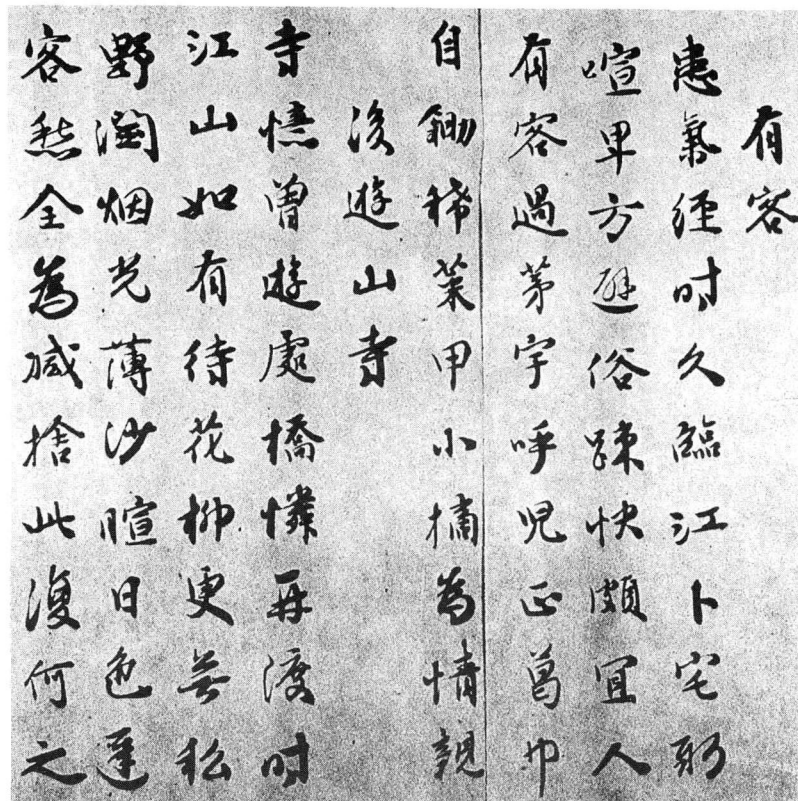 有客
患氣經時久臨江卜宅新
喧卑方避俗踈快頗宜人
有客過茅宇呼兒正葛巾
自鋤稀菜甲小摘為情親
後遊山寺
寺憶曾遊處橋憐再渡時
江山如有待花柳更無私
野潤烟光薄沙暄日色遲
客愁全為減捨此復何之